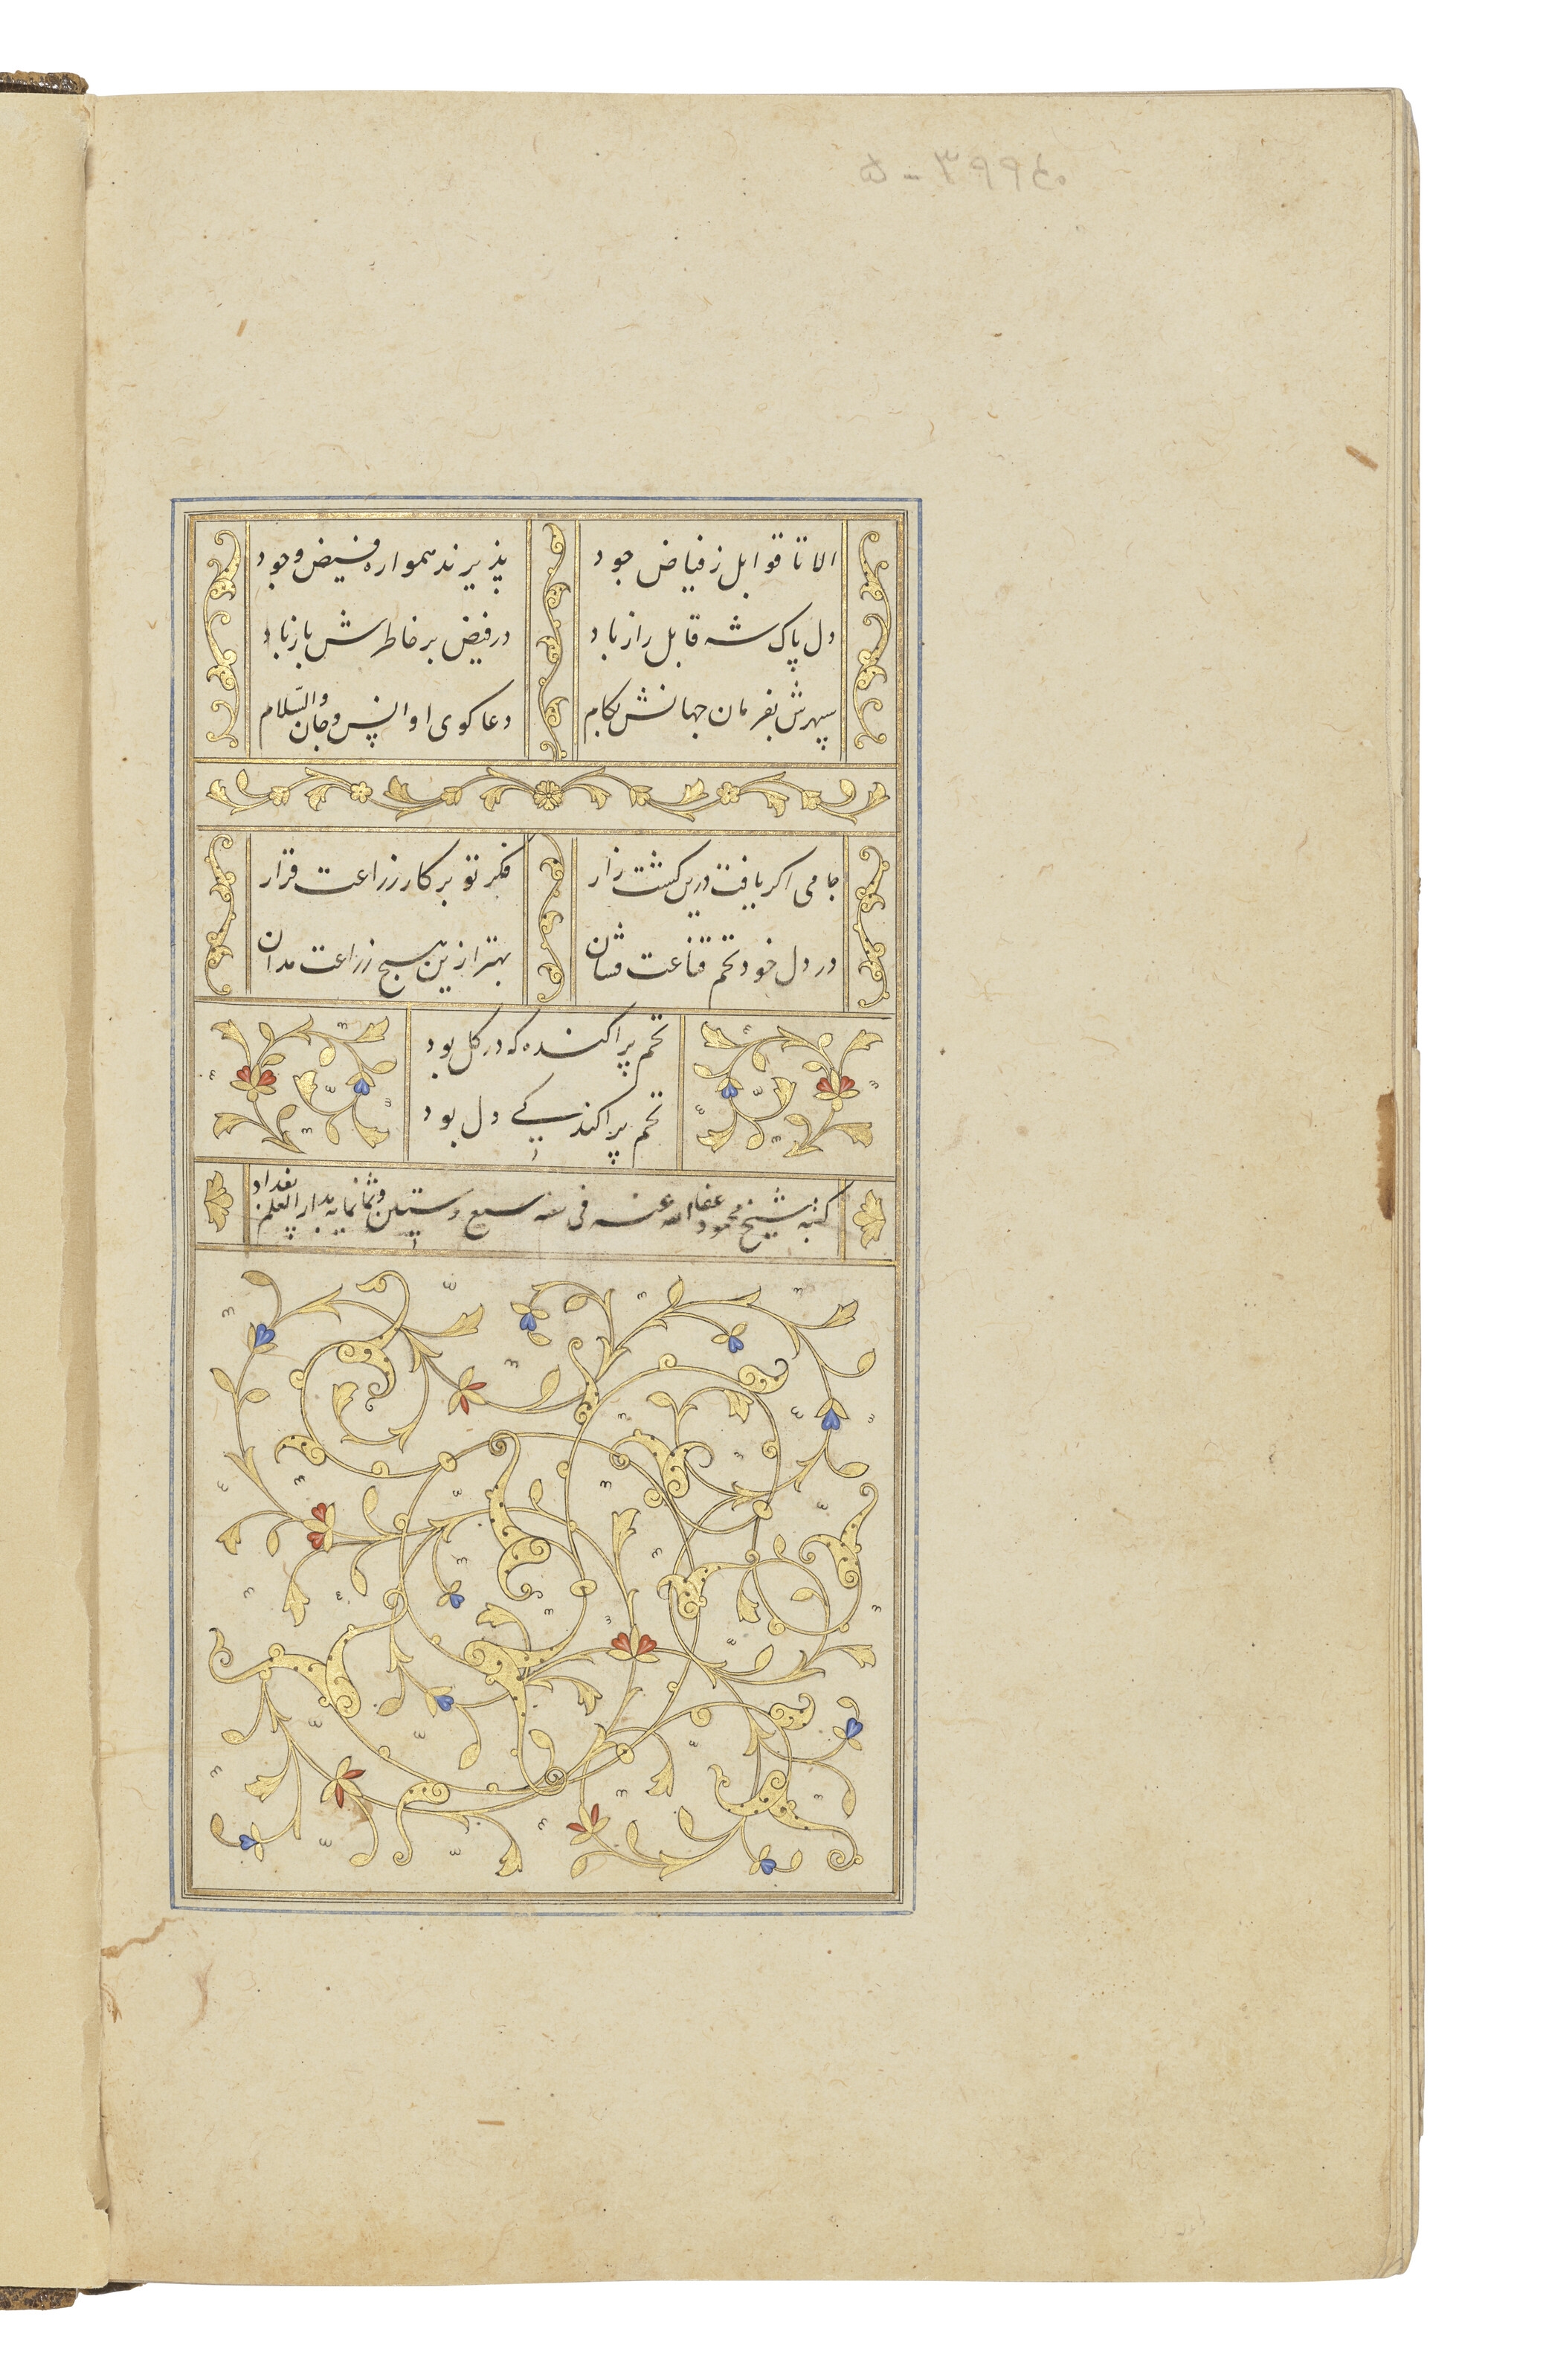 الا تا قوابل ز فیاض جود پذیرند همواره فیض وجود
دل پاک شه قابل راز باد در فیض بر خاطرش باز باد
سپهرش بفرمان جهانش بکام دعا کوی او انس و جان والسّلام
جامی اکر یافت درین کشت زار فکر تو بر کار زراعت قرار
در دل خود تخم قناعت فشان بهتر ازین هیچ زراعت مدان
تخم پراکنده که در کل بود
تخم پراکندکی دل بود
کتبه شیخ محمود عفا الله عنه فی سنه سبع وستین وثمانمایه بدار السلم بغداد